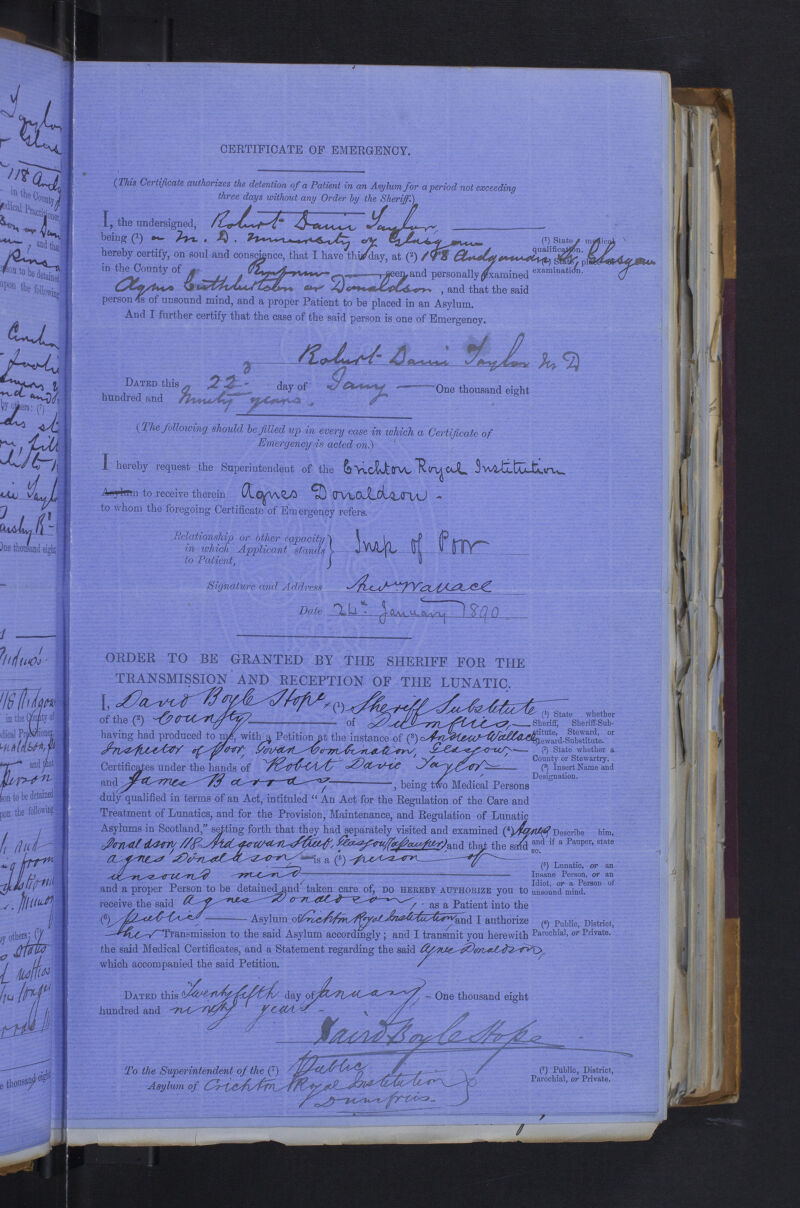 CERTIFICATE OF EMERGENCY.
(This Certificate authorizes the detention of a Patient in an Asylum for a period not exceeding
three days without any Order by the Sheriff.)
I, the undersigned, Robert Davie Taylor,
being (1) a M. D. University of Glasgow
hereby certify, on soul and conscience, that I have this day, at (2) 118 Ardgowan St, Glasgow
in the County of Renfrew seen and personally examined
Agnes Cuthbertson or Donaldson, and that the said
person is of unsound mind, and a proper Patient to be placed in an Asylum.
And I further certify that the case of the said person is one of Emergency.
(1) State medical
qualification.
(2) State place of
examination.
Robert Davie Taylor M D
DATED this 22d day of Jany One thousand eight
hundred and Ninety years.
(The following should be filled up in every case in which a Certificate of
Emergency is acted on.)
I hereby request the Superintendent of the Crichton Royal Institution
Asylum to receive therein Agnes Donaldson -
to whom the foregoing Certificate of Emergency refers.
Relationship or other capacity
in which Applicant stands
to Patient, } Insp of Poor
Signature and Address Andw Wallace
Date 24th January 1890
ORDER TO BE GRANTED BY THE SHERIFF FOR THE
TRANSMISSION AND RECEPTION OF THE LUNATIC.
I, David Boyle Hope, (1) Sheriff Substitute
of the (2) County of Dumfries,
having had produced to me, with a Petition at the instance of (3) Andrew Wallace
Inspector of Poor, Govan Combination, Glasgow,
Certificates under the hands of Robert Davie Taylor
and James Barras, being two Medical Persons
duly qualified in terms of an Act, intituled "An Act for the Regulation of the Care and
Treatment of Lunatics, and for the Provision, Maintenance, and Regulation of Lunatic
Asylums in Scotland," setting forth that they had separately visited and examined (4) Agnes
Donaldson, 118 Ardgowan Street, Glasgow (a Pauper) and that the said
Agnes Donaldson is a (5) person of
unsound mind
and a proper Person to be detained and taken care of, DO HEREBY AUTHORIZE you to
receive the said Agnes Donaldson, as a Patient into the
(6) Public Asylum of Crichton Royal Institution and I authorize
her Transmission to the said Asylum accordingly; and I transmit you herewith
the said Medical Certificates, and a Statement regarding the said Agnes Donaldson,
which accompanied the said Petition.
(1) State whether
Sheriff, Sheriff-Sub-
stitute, Steward, or
Steward-Substitute.
(2) State whether a
County or Stewartry.
(3) Insert Name and
Designation.
(4) Describe him,
and if a Pauper, state
so.
(5) Lunatic, or an
Insane Person, or an
Idiot, or a Person of
unsound mind.
(6) Public, District,
Parochial, or Private.
DATED this Twenty fifth day of January, - One thousand eight
hundred and ninety years -
David Boyle Hope
To the Superintendent of the (7) Public
Asylum of Crichton Royal Institution
Dumfries
(7) Public, District,
Parochial, or Private.